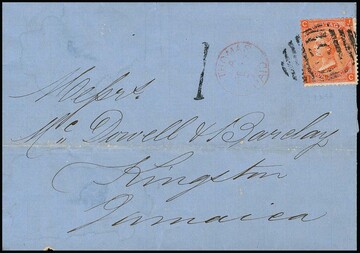 1
Messrs.
Mc. Dowell & Barclay
Kingston
Jamaica